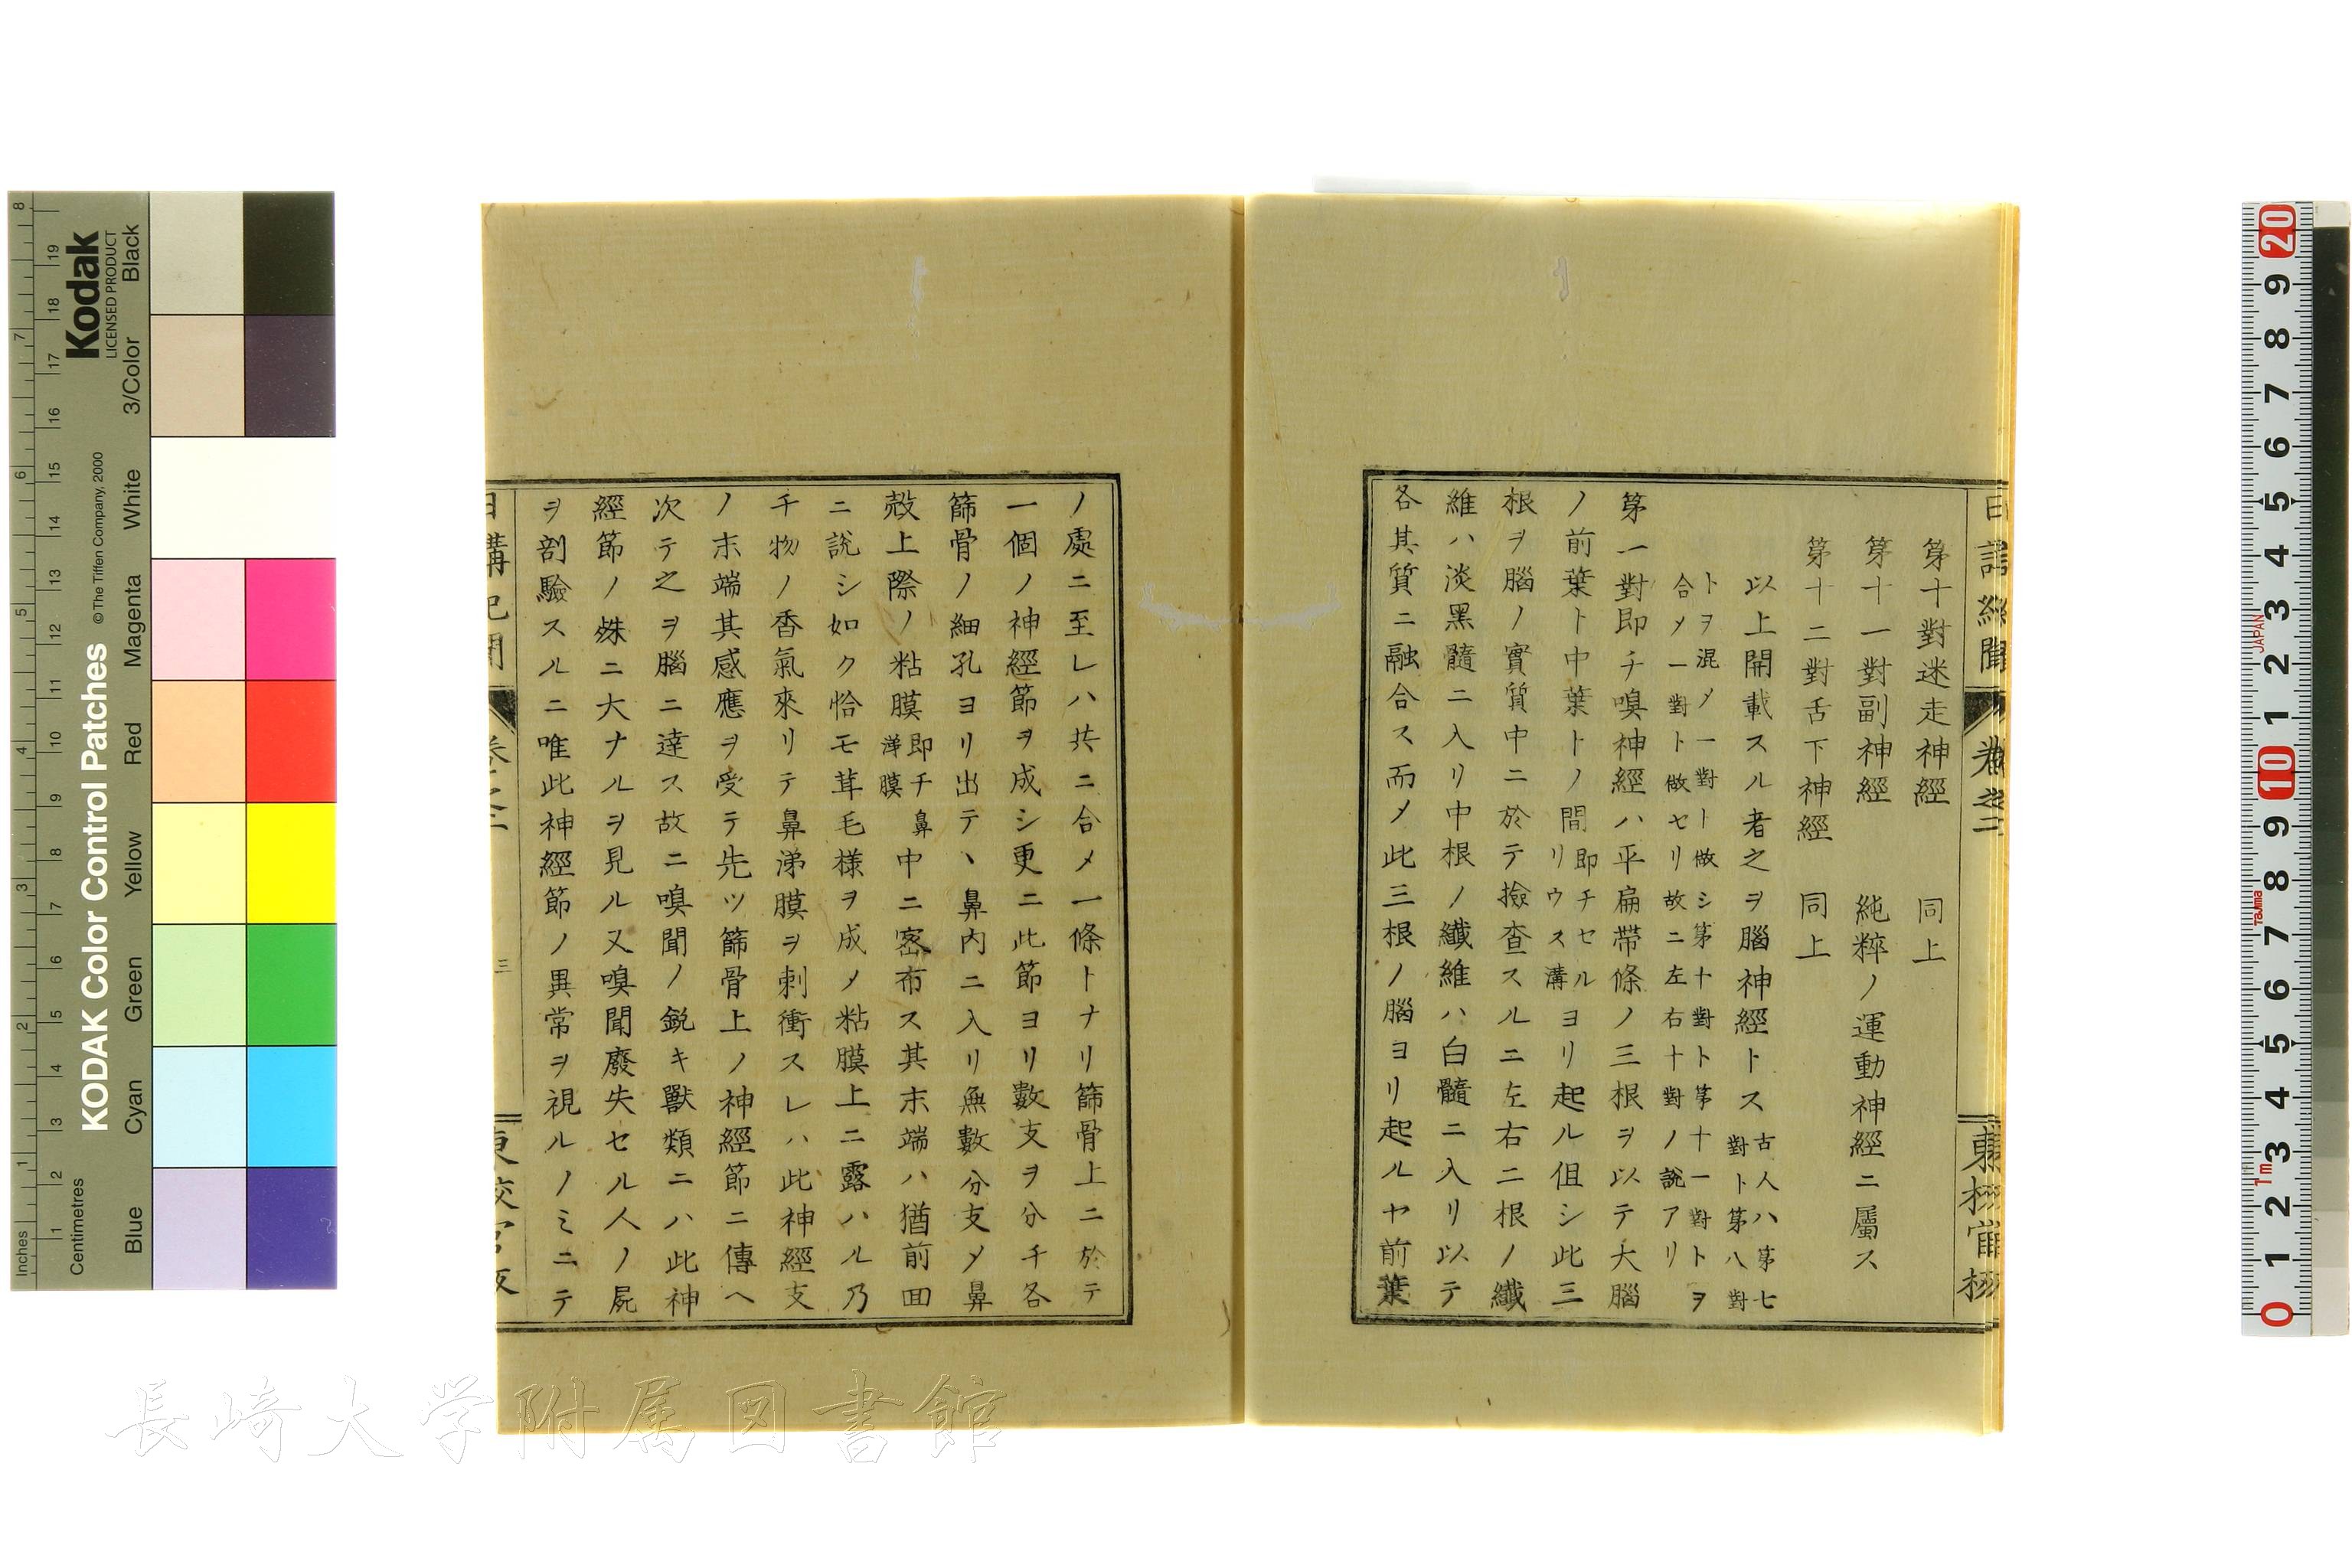 第十對迷走神經　同上
第十一對副神經　純粹ノ運動神經ニ屬ス
第十二對舌下神經　同上
以上開載スル者之ヲ腦神經トス古人ハ第七對ト第八對
トヲ混メ一對ト做シ第十對ト第十一對トヲ
合メ一對ト做セリ故ニ左右十對ノ說アリ
第一對即チ嗅神經ハ平扁帶條ノ三根ヲ以テ大腦
ノ前葉ト中葉トノ間即チセルリウス溝ヨリ起ル但シ此三
根ヲ腦ノ實質中ニ於テ撿查スルニ左右二根ノ纖
維ハ淡黑髓ニ入リ中根ノ纖維ハ白髓ニ入リ以テ
各其質ニ融合ス而メ此三根ノ腦ヨリ起ルヤ前葉
ノ處ニ至レハ共ニ合メ一條トナリ篩骨上ニ於テ
一個ノ神經節ヲ成シ更ニ此節ヨリ數支ヲ分チ各
篩骨ノ細孔ヨリ出テヽ鼻內ニ入リ無數分支メ鼻
殼上際ノ粘膜即チ鼻涕膜中ニ密布ス其末端ハ猶前回
ニ說シ如ク恰モ茸毛樣ヲ成メ粘膜上ニ露ハル乃
チ物ノ香氣來リテ鼻涕膜ヲ刺衝スレハ此神經支
ノ末端其感應ヲ受テ先ツ篩骨上ノ神經節ニ傳ヘ
次テ之ヲ腦ニ達ス故ニ嗅聞ノ銳キ獸類ニハ此神
經節ノ殊ニ大ナルヲ見ル又嗅聞廢失セル人ノ屍
ヲ剖驗スルニ唯此神經節ノ異常ヲ視ルノミニテ
日講記聞
卷之二
三
長崎大学附属図書館
Kodak
LICENSED PRODUCT
KODAK Color Control Patches
© The Tiffen Company, 2000
Blue Cyan Green Yellow Red Magenta White 3/Color Black
Inches 1 2 3 4 5 6 7 8
Centimetres 1 2 3 4 5 6 7 8 9 10 11 12 13 14 15 16 17 18 19
20 9 8 7 6 5 4 3 2 1 10 9 8 7 6 5 4 3 2 1 0
JAPAN
Tajima
1m